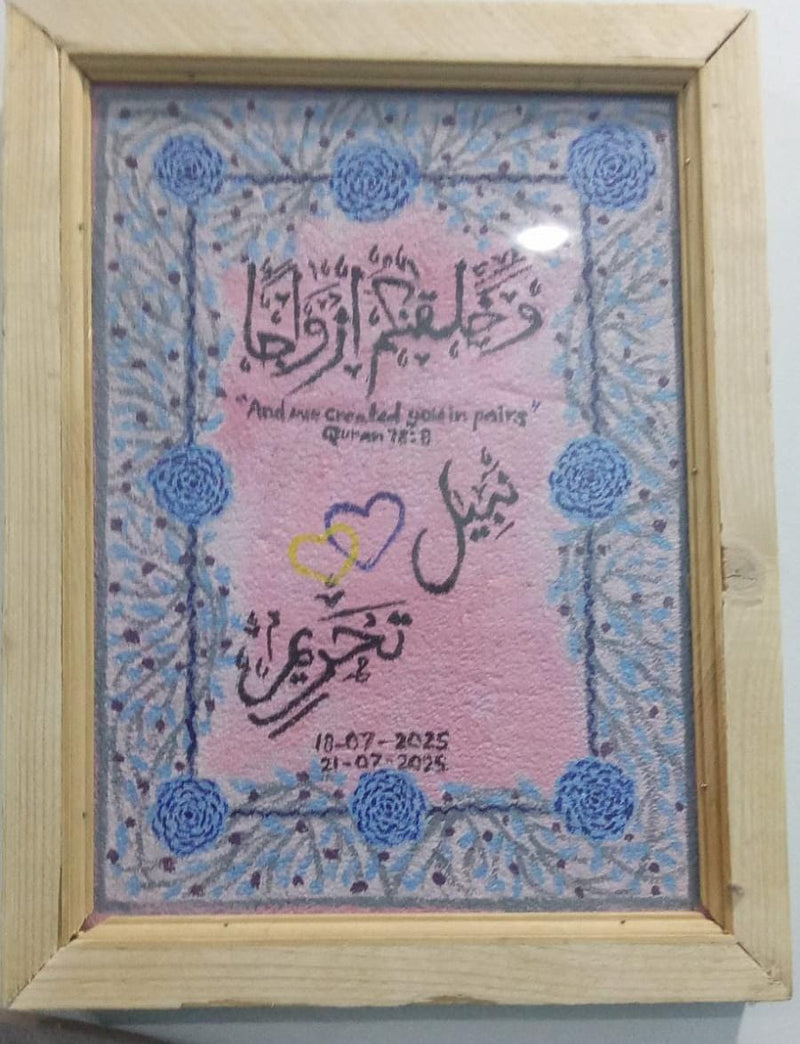 وخلقنكم ازواجا
"And we created you in pairs"
Quran 78:8
نبيل
تحريم
18-07-2025
21-07-2025